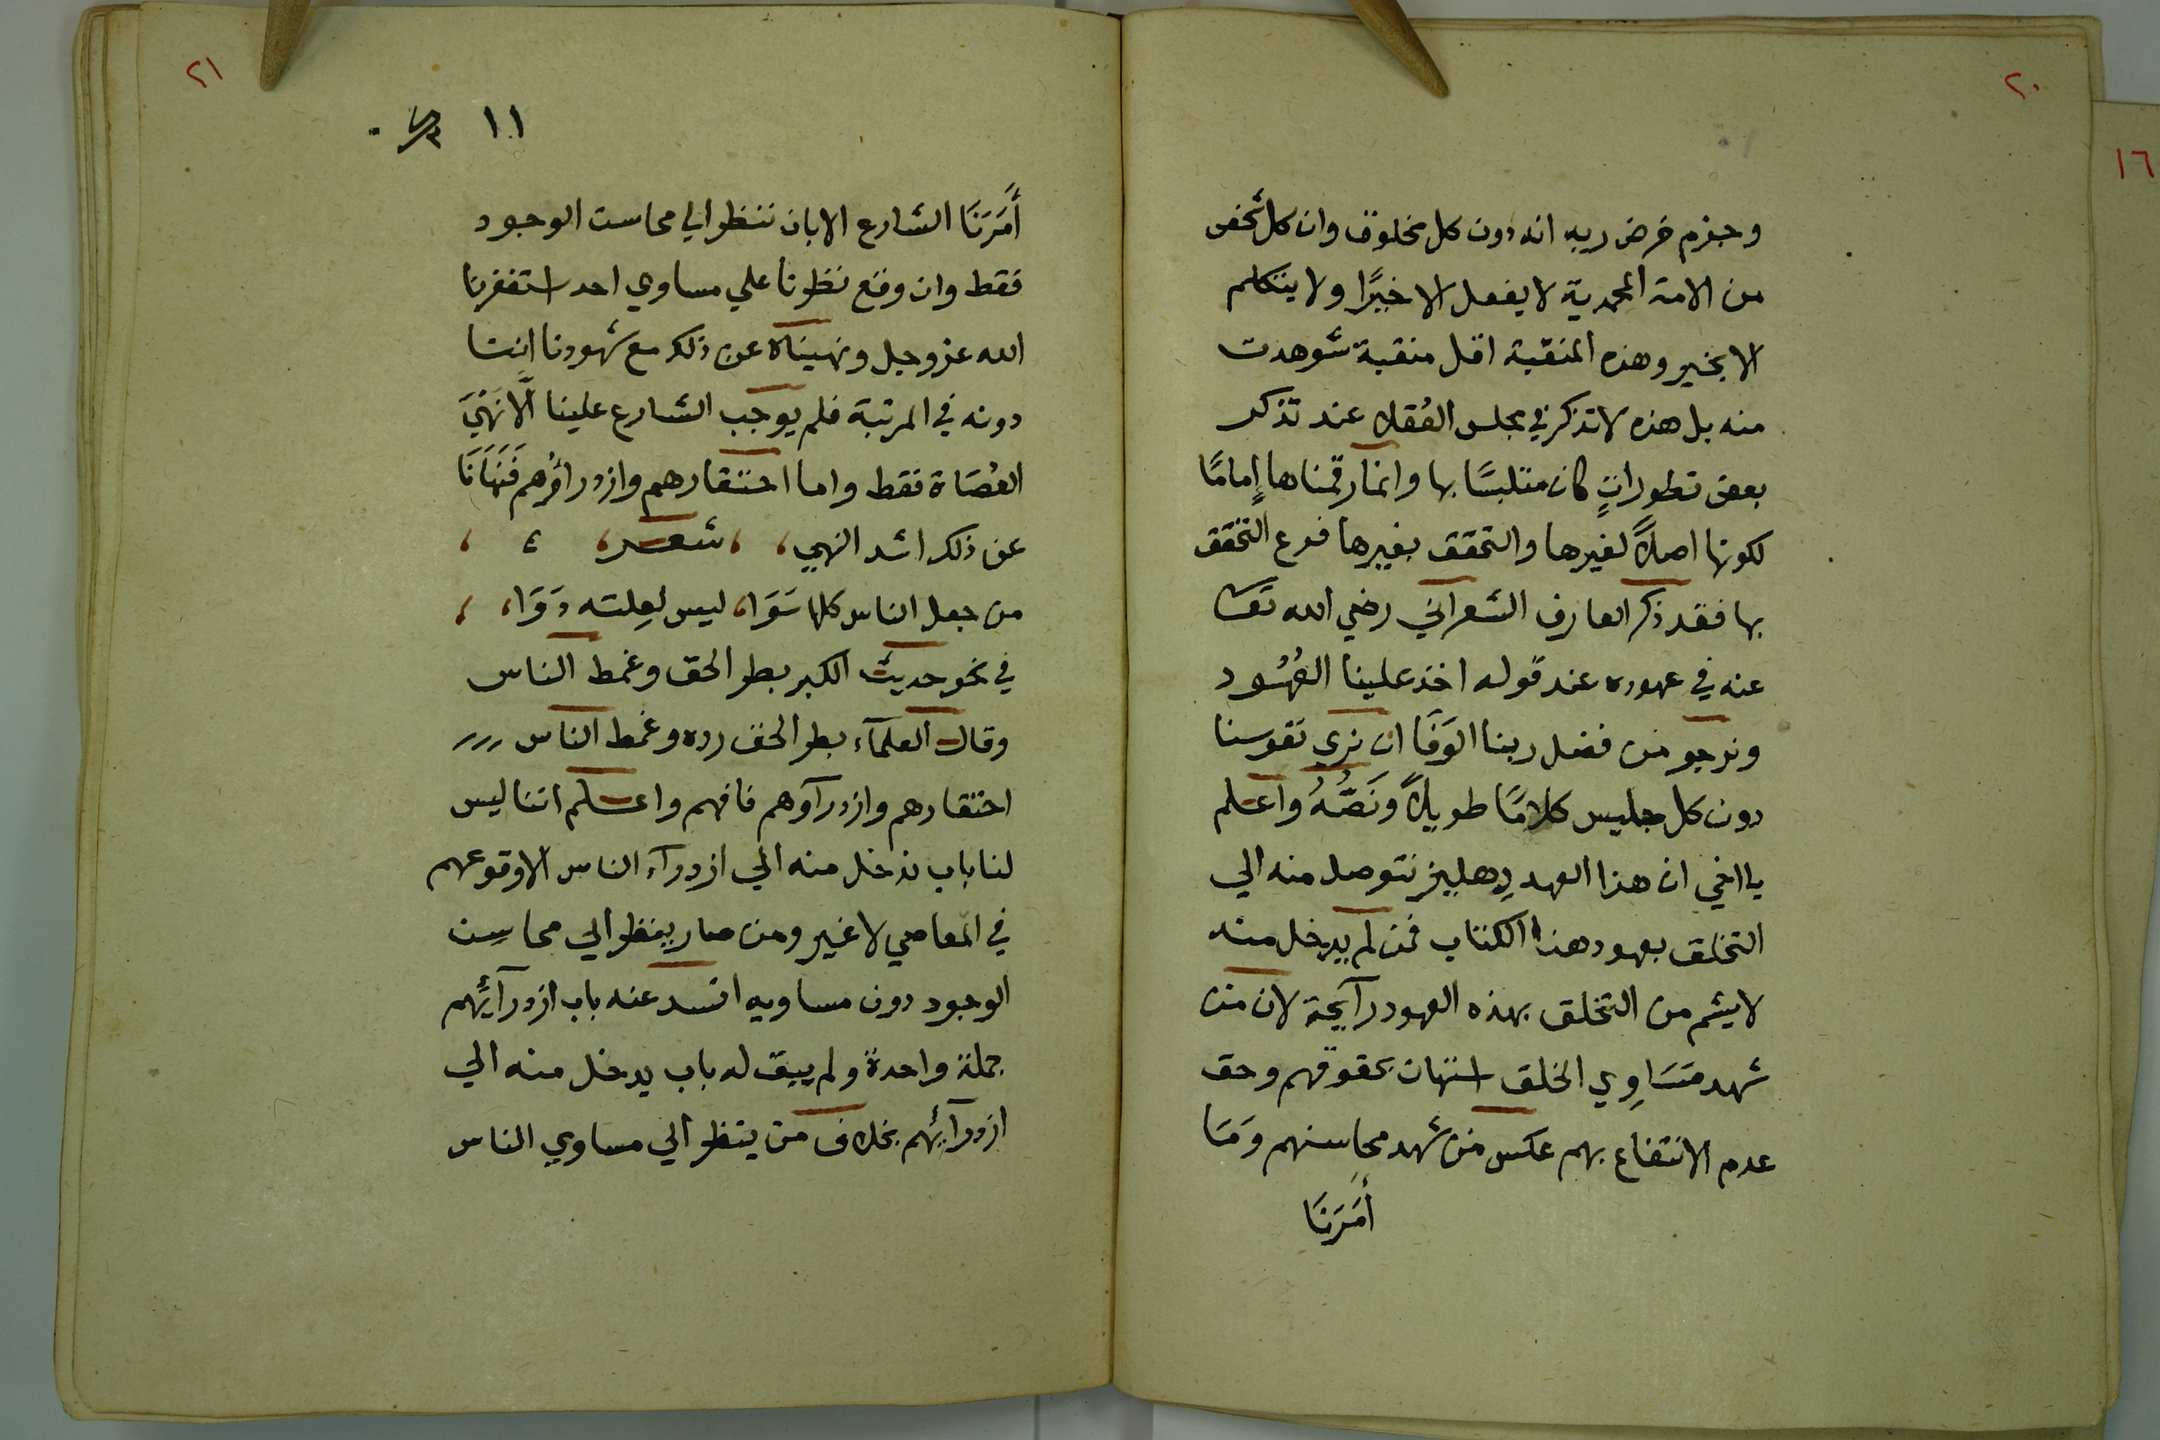 ٢٠
١٦
وجزم فرض ربه انه دون كل مخلوق وان كل شخص
من الامة المحمدية لا يفعل الا خيرًا ولا يتكلم
الا بخير وهذه المنقبة اقل منقبة شوهدت
منه بل هذه لا تذكر في مجلس العُقلا عند تذكر
بعض تطوراتٍ كان متلبسًا بها وانما رقمناها إمامًا
لكونها اصلاً لغيرها والتحقق بغيرها فرع التحقق
بها فقد ذكر العارف الشعراني رضي الله تعا
عنه في عهوده عند قوله اخذ علينا العُهُود
ونرجو من فضل ربنا الوَفَا ان نري نفوسنا
دون كل جليس كلامًا طويلاً ونَصُّهُ واعلم
يا اخي ان هذا العهد دِهليز نتوصل منه الي
التخلق بعهود هذا الكتاب فمن لم يدخل منه
لا يشم من التخلق بهذه العهود رآيحة لان من
شهد مَسَاوِي الخلق استهان بحقوقهم وحق
عدم الانتفاع بهم عكس من شهد محاسنهم وَمَا
أَمَرَنَا
٢١
١١
أَمَرَنَا الشارع الا بان ننظر الي محاسن الوجود
فقط وان وقع نظرنا علي مساوي احد استغفرنا
الله عز وجل ونهيناه عن ذلك مع شهودنا اننا
دونه في المرتبة فلم يوجب الشارع علينا الَّا نَهْيَ
العُصَاة فقط واما احتقارهم وازدرائُهم فَنَهَانَا
عن ذلك اشد النهي، ، شعر، ، ،
من جعل الناس كلها سَوَا، ليس لعِلته دَوَا، ،
في نحو حديث الكبر بطر الحق وغمط الناس
وقال العلمآء بطر الحق رده وغمط الناس
احتقارهم وازدرآوهم فافهم واعلم اننا ليس
لنا باب ندخل منه الي ازدرآء الناس الا وقوعهم
في المعاصي لا غير ومن صار ينظر الي محاسِن
الوجود دون مساويه انسد عنه باب ازدرآئِهم
جملة واحدة ولم يبق له باب يدخل منه الي
ازدرآئِهم بخلاف من ينظر الي مساوي الناس